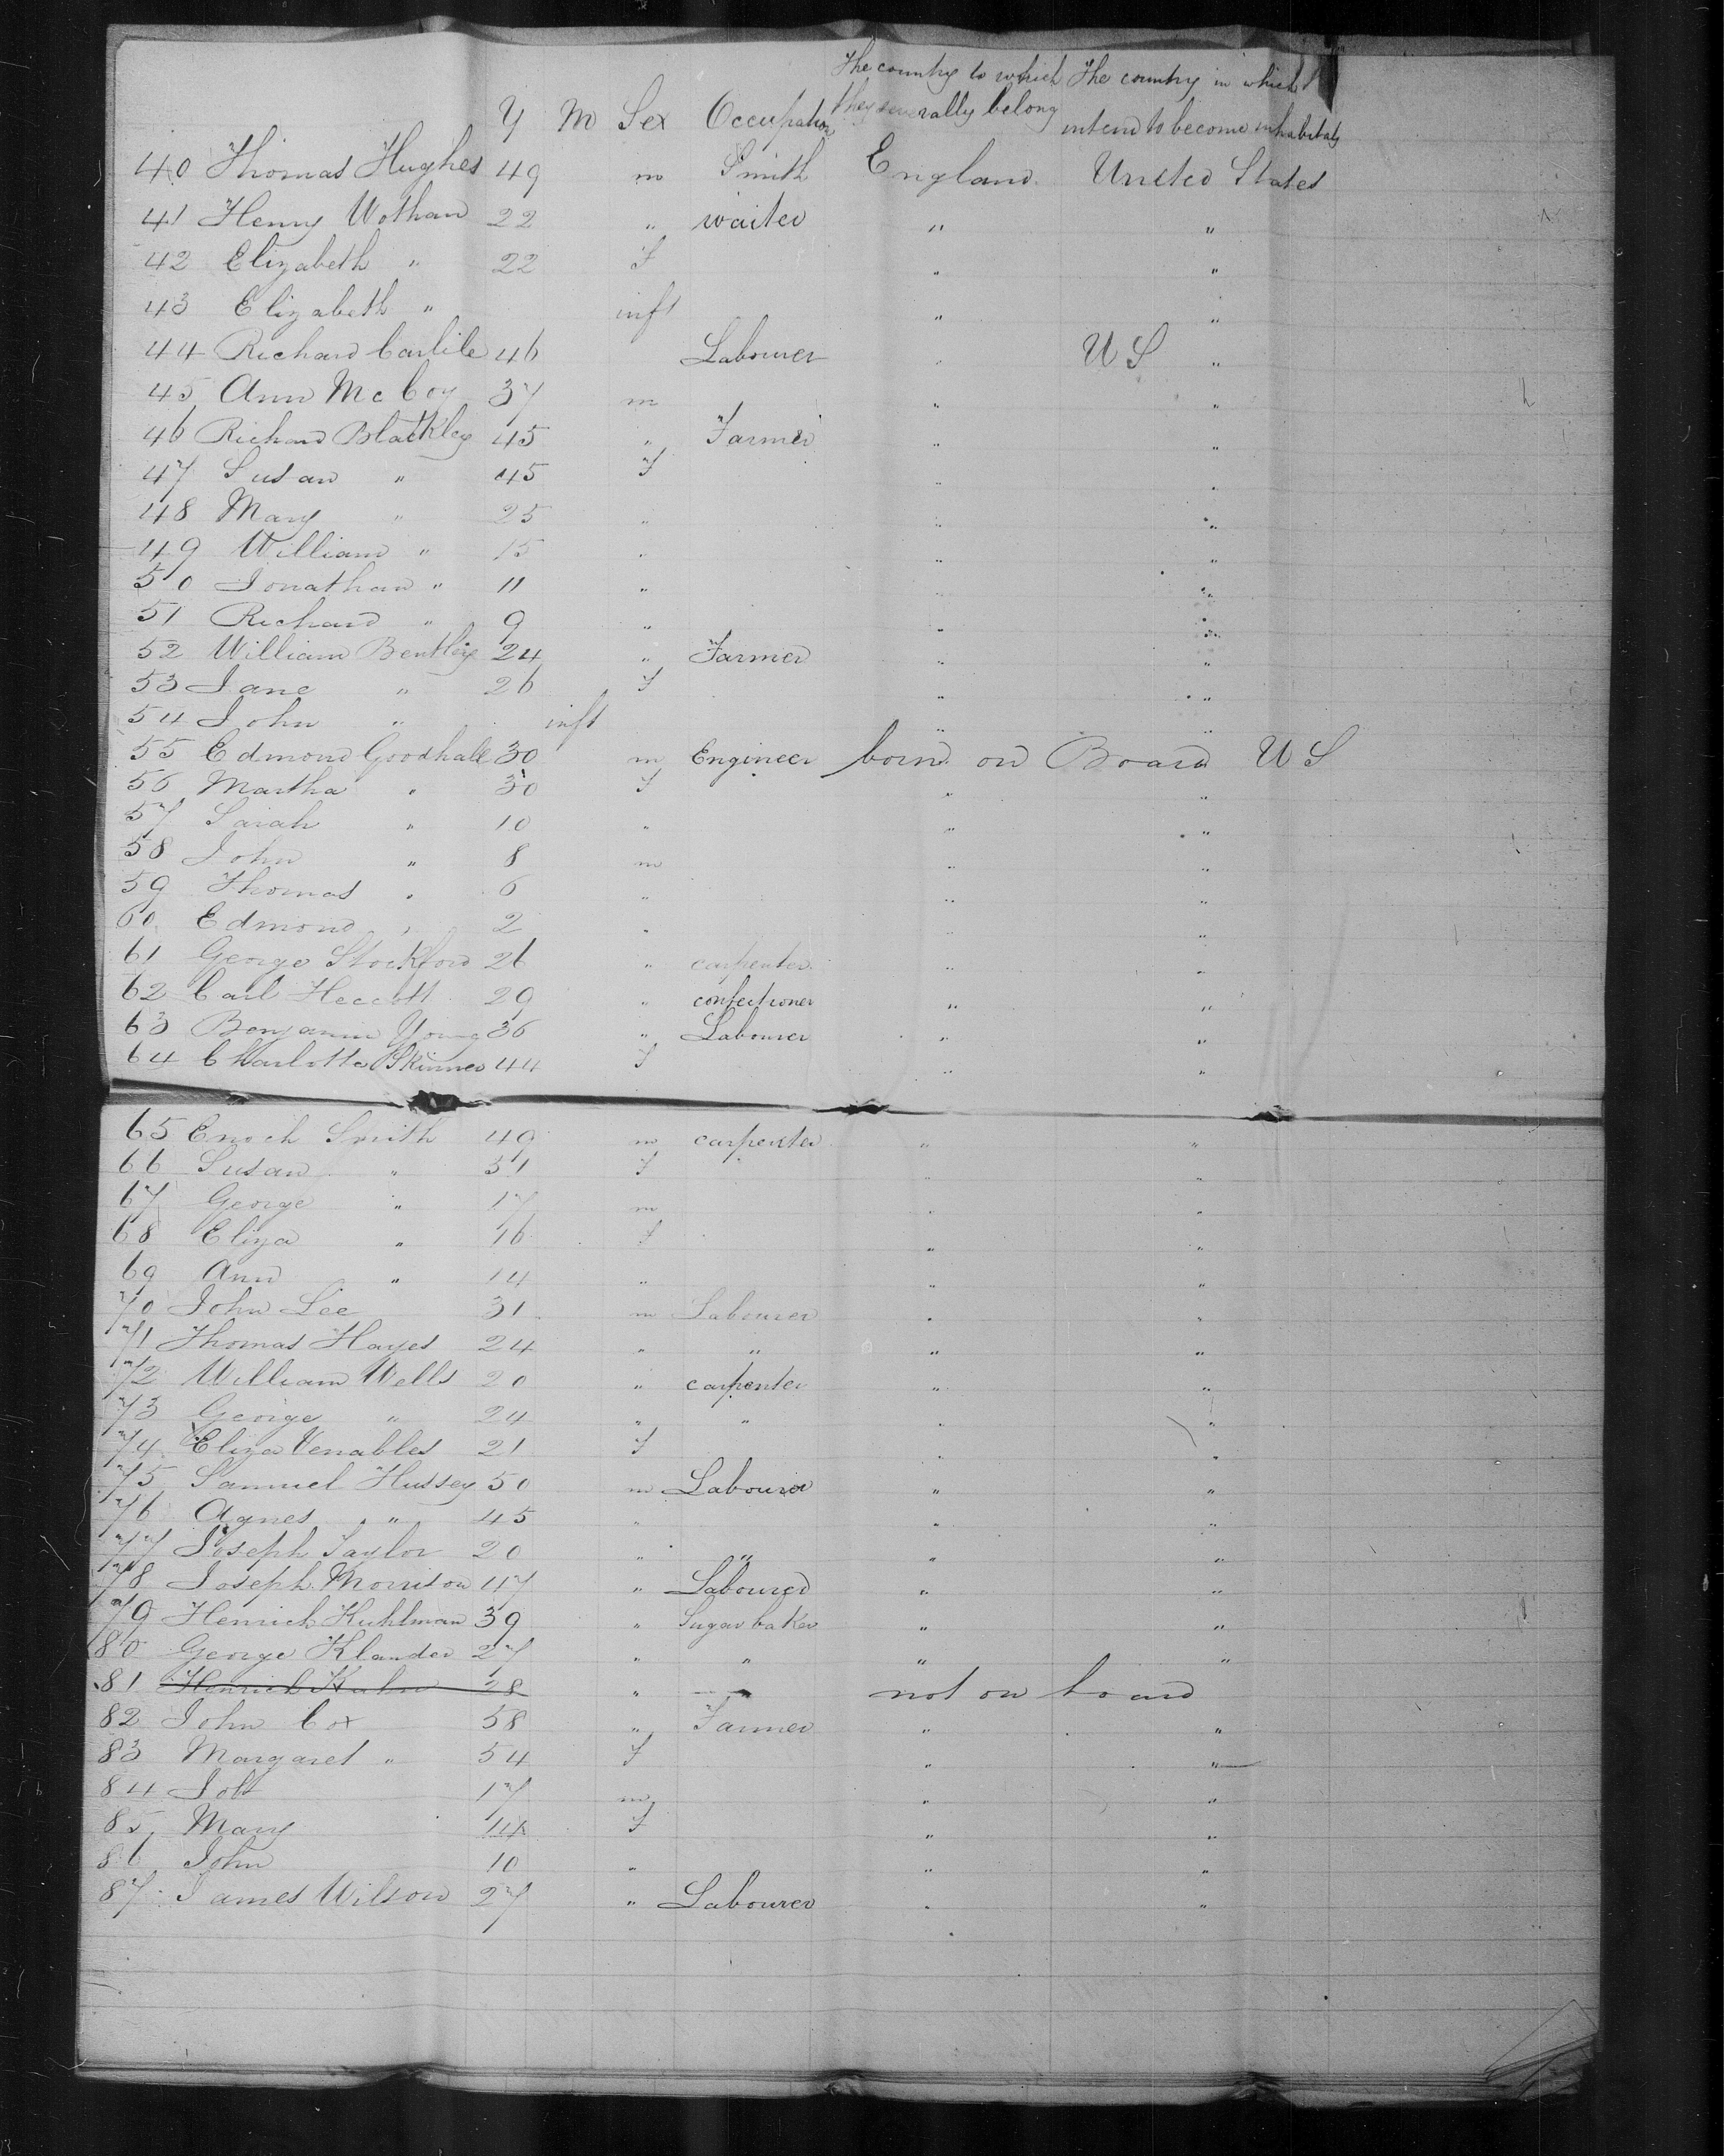 The country to which The country in which
Y M Sex Occupation they severally belong intend to become inhabitats
40 Thomas Hughes 49 m Smith England United States
41 Henry Wothan 22 " waiter " "
42 Elizabeth " 22 f " "
43 Elizabeth " inft " "
44 Richard Carlile 46 Labourer " U S "
45 Ann McCoy 37 m " "
46 Richard Blackley 45 " Farmer " "
47 Susan " 45 f " "
48 Mary " 25 " " "
49 William " 15 " " "
50 Jonathan " 11 " " "
51 Richard " 9 " " "
52 William Bentley 24 " Farmer " "
53 Jane " 26 f " "
54 John " inft " "
55 Edmond Goodhall 30 m Engineer born on Board U S
56 Martha " 30 f " "
57 Sarah " 10 " " "
58 John " 8 m " "
59 Thomas " 6 " " "
60 Edmond " 2 " " "
61 George Stockford 26 " carpenter " "
62 Carl Heccott 29 " confectioner " "
63 Benjamin Young 36 " Labourer " "
64 Charlotte Skinner 44 f " "
65 Enoch Smith 49 m carpenter " "
66 Susan " 31 f " "
67 George " 17 m " "
68 Eliza " 16 f " "
69 Ann " 14 " " "
70 John Lee 31 m Labourer " "
71 Thomas Hayes 24 " " " "
72 William Wells 20 " carpenter " "
73 George " 24 " " " "
74 Eliza Venables 21 f " "
75 Samuel Hussey 50 m Labourer " "
76 Agnes " 45 " " "
77 Joseph Taylor 20 " " " "
78 Joseph Morrison 47 " Labourer " "
79 Henrich Kuhlman 39 " Sugar baker " "
80 George Klander 27 " " " "
81 Henrich Kuhn 28 " — not on board
82 John Cox 58 " Farmer " "
83 Margaret " 54 f " "
84 Job 17 m " "
85 Mary 14 f " "
86 John 10 " " "
87 James Wilson 27 " Labourer " "